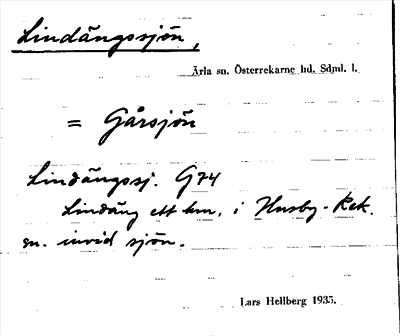 Lindängssjön,
Ärla sn. Österrekarne hd. Sdml. l.
= Gårsjön
Lindängssj. G74
Lindäng ett hm. i Husby-Rek.
sn. invid sjön.
Lars Hellberg 1935.